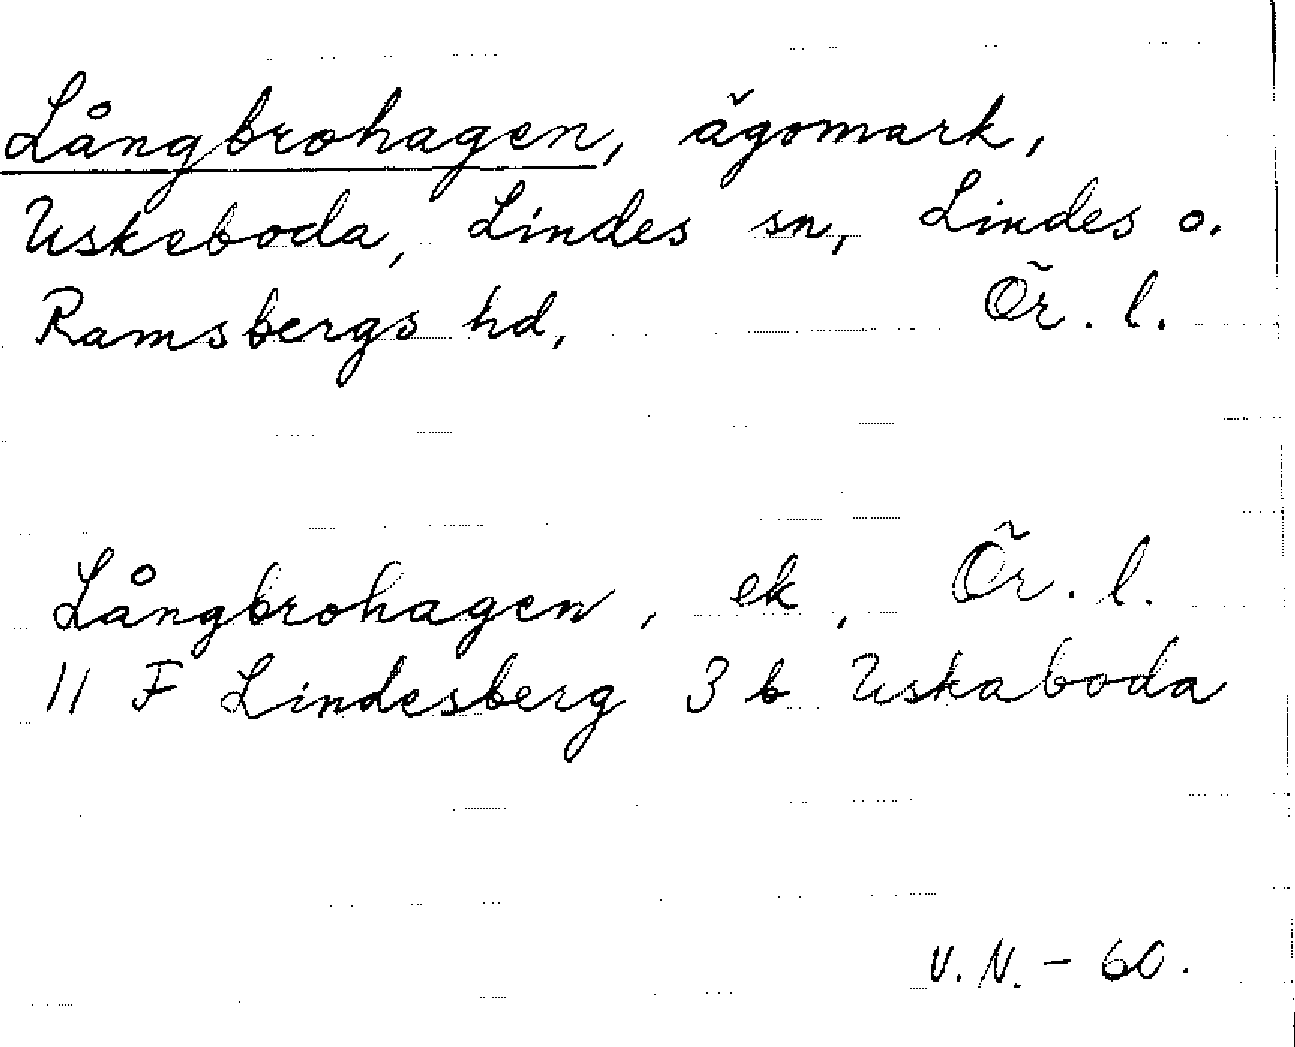 Långbrohagen, ägomark,
Uskeboda, Lindes sn, Lindes o.
Ramsbergs hd, Ör. l.
Långbrohagen, ek, Ör. l.
11 F Lindesberg 3 b Uskaboda
V. N. - 60.